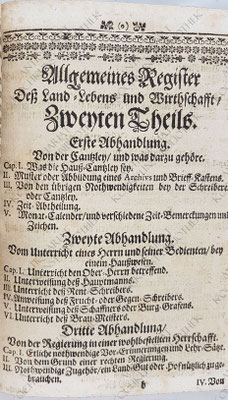 (o)
Allgemeines Register
Deß Land-Lebens und Wirthschafft/
Zweyten Theils.
Erste Abhandlung.
Von der Cantzley/ und was darzu gehöre.
Cap. I. Was die Hauß-Cantzley sey.
II. Muster oder Abbildung eines Archivs und Brieff-Kastens.
III. Von den übrigen Nothwendigkeiten bey der Schreiberey
oder Cantzley.
IV. Zeit-Abtheilung.
V. Monat-Calender/ und verschiedene Zeit-Bemerckungen und
Zeichen.
Zweyte Abhandlung.
Vom Unterricht eines Herrn und seiner Bedienten/ bey
einem Hauswesen.
Cap. I. Unterricht den Ober-Herrn betreffend.
II. Unterweisung deß Hauptmanns.
III. Unterricht deß Rent-Schreibers.
IV. Anweisung deß Frucht- oder Gegen-Schreibers.
V. Unterweisung deß Schaffners oder Burg Grafens.
VI. Unterricht deß Brau-Meisters.
Dritte Abhandlung/
Von der Regierung in einer wohlbestellten Herrschafft.
Cap. I. Etliche nothwendige Vor-Erinnerungen und Lehr-Sätze.
II. Von dem Grund einer rechten Regierung.
III. Nothwendige Zugehör/ ein Land-Gut oder Hof nützlich zu ge-
brauchen.
b
IV. Von